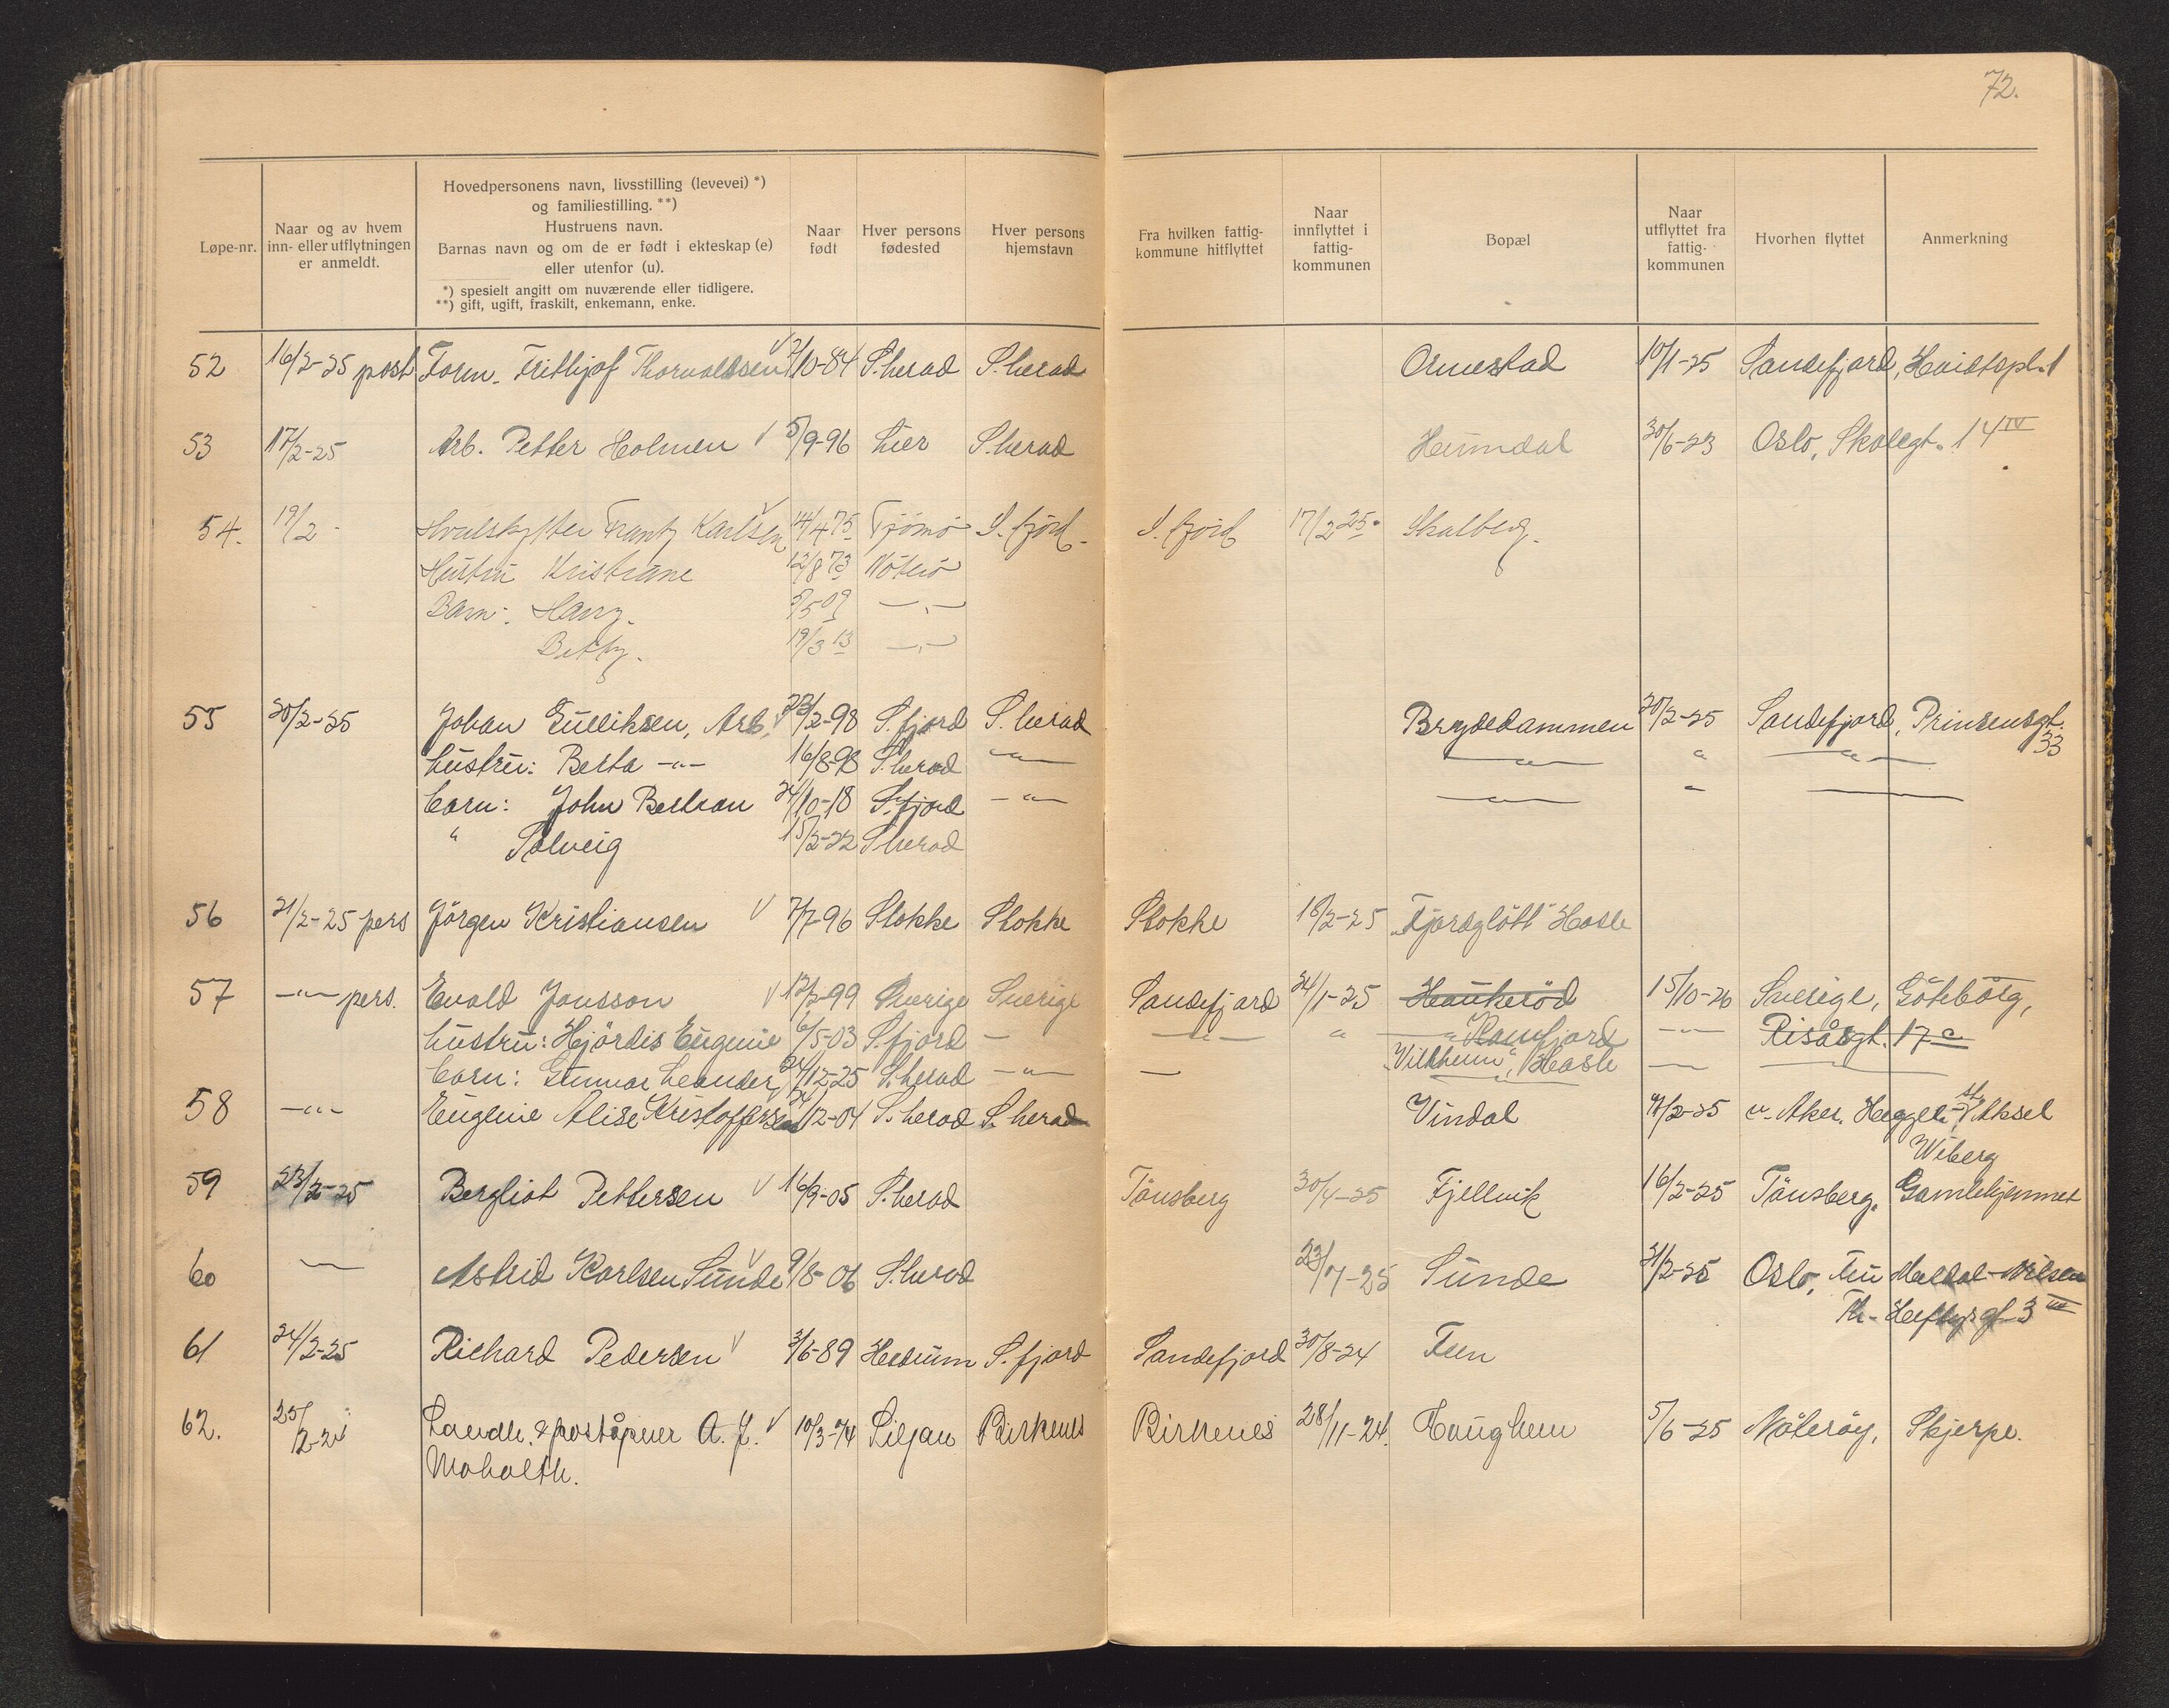 72.
Løpe-nr.
Naar og av hvem
inn- eller utflytningen
er anmeldt.
Hovedpersonens navn, livsstilling (levevei) *)
og familiestilling. **)
Hustruens navn.
Barnas navn og om de er født i ekteskap (e)
eller utenfor (u).
*) spesielt angitt om nuværende eller tidligere.
**) gift, ugift, fraskilt, enkemann, enke.
Naar
født
Hver persons
fødested
Hver persons
hjemstavn
Fra hvilken fattig-
kommune hitflyttet
Naar
innflyttet i
fattig-
kommunen
Bopæl
Naar
utflyttet fra
fattig-
kommunen
Hvorhen flyttet
Anmerkning
52 16/2-25 post Form. Frithjof Thorvaldsen 7/10-84 S.herad S.herad Ormestad 10/1-25 Sandefjord, Hvidtspl. 1
53 17/2-25 Arb. Petter Holmen √ 5/9-96 Lier S.herad Heimdal 30/6-23 Oslo, Skolegt. 14 IV
54. 19/2 - Hvalskytter Frantz Karlsen √ 14/4 75 Tjömö S. fjord. S. fjord 17/2 25. Skalberg.
Hustru Kristiane 12/8 73 Nöterö
Barn: Harry. 5/5 09 —„—
Betty. 19/3 13 —„—
55 20/2-25 Johan Gulliksen, Arb. √ 22/2-98 S.fjord S.herad Brydedammen 20/2-25 Sandefjord, Prinsensgt.
33
hustru: Berta -„- 16/8-98 S.herad —„— —„— „ —„—
barn: John Bertran 24/10-18 S.fjord -„- —„— „
„ Solveig 15/2-22 S.herad
56 21/2-25 pers Jörgen Kristiansen √ 7/7-96 Stokke Stokke Stokke 18/2-25 „Fjordglött" Hasle
57 -„- pers. Evald Jonsson √ 12/2-99 Sverige Sverige Sandefjord 24/1-25 Haukeröd 15/10-26 Sverige, Göteborg,
hustru: Hjördis Eugenie 6/5-03 S.fjord — —„— „ —„— Ramfjord -„- Risåsgt. 17 a
barn: Gunnar Leander 24/12-25 S.herad -„- — „Vilhheim", Hasle —
58 -„- Eugenie Alise Kristoffersen 24/12-04 S.herad S.herad Vindal 4/2-25 v. Aker. Heggeli, Aksel
Wiberg
59 23/2-25 Bergliot Pettersen √ 16/9-05 S.herad Tönsberg 30/4-25 Fjellvik 16/2-25 Tönsberg, Gamlehjemmet
60 — Astrid Karlsen Sunde √ 9/8-06 S.herad 23/7-25 Sunde 21/2-25 Oslo, Meldal-Nilsen
Th. Heftysgt 3 III
61 24/2-25 Richard Pedersen √ 3/6-89 Hedrum S.fjord Sandefjord 30/8-24 Fen
62. 25/2-24 Landh. & poståpner A. J. √ 10/3-74 Siljan Birkenes Birkenes 28/11-24. Haughem 5/6-25 Nöteröy, Skjerpe.
Moholth.